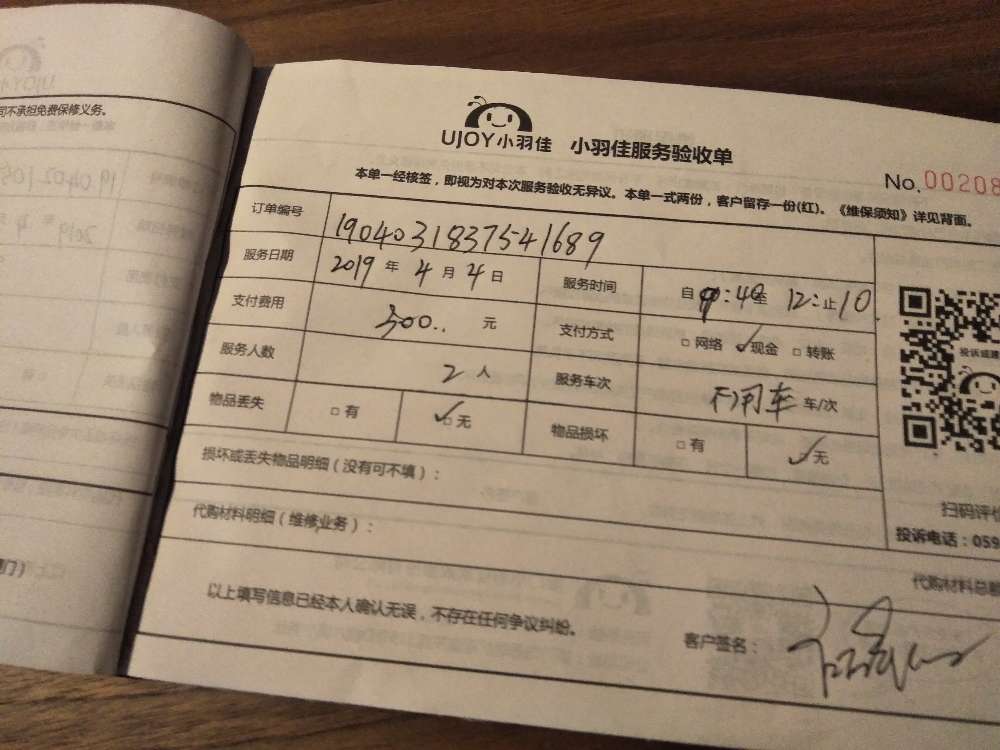 司不承担免费保修义务。
UJOY小羽佳 小羽佳服务验收单
No. 00208
本单一经核签，即视为对本次服务验收无异议。本单一式两份，客户留存一份(红)。《维保须知》详见背面。
订单编号 1904031837541689
服务日期 2019 年 4 月 4 日 服务时间 自 9:40至 12:止10
支付费用 300.. 元 支付方式 □ 网络 ✓现金 □ 转账
服务人数 2 人 服务车次 不用车 车/次
物品丢失 □ 有 ✓□ 无 物品损坏 □ 有 ✓无
损坏或丢失物品明细（没有可不填）：
扫码评价
代购材料明细（维修业务）：
投诉电话：059
代购材料总
以上填写信息已经本人确认无误，不存在任何争议纠纷。
客户签名：